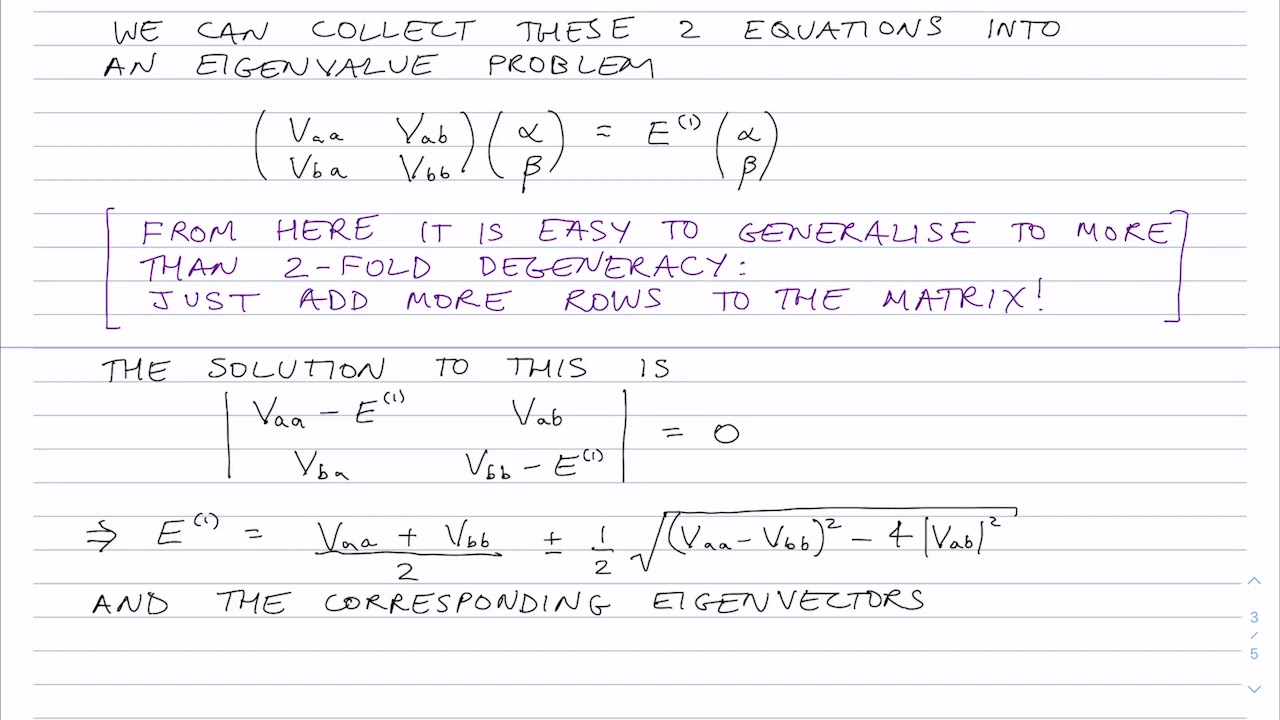 WE CAN COLLECT THESE 2 EQUATIONS INTO
AN EIGENVALUE PROBLEM
( Vaa Vab ) ( α ) = E⁽¹⁾ ( α )
( Vba Vbb ) ( β ) ( β )
[ FROM HERE IT IS EASY TO GENERALISE TO MORE ]
THAN 2-FOLD DEGENERACY:
JUST ADD MORE ROWS TO THE MATRIX!
THE SOLUTION TO THIS IS
| Vaa - E⁽¹⁾ Vab | = 0
| Vba Vbb - E⁽¹⁾ |
⇒ E⁽¹⁾ = (Vaa + Vbb)/2 ± 1/2 √((Vaa - Vbb)² - 4|Vab|²)
AND THE CORRESPONDING EIGENVECTORS
3
/
5